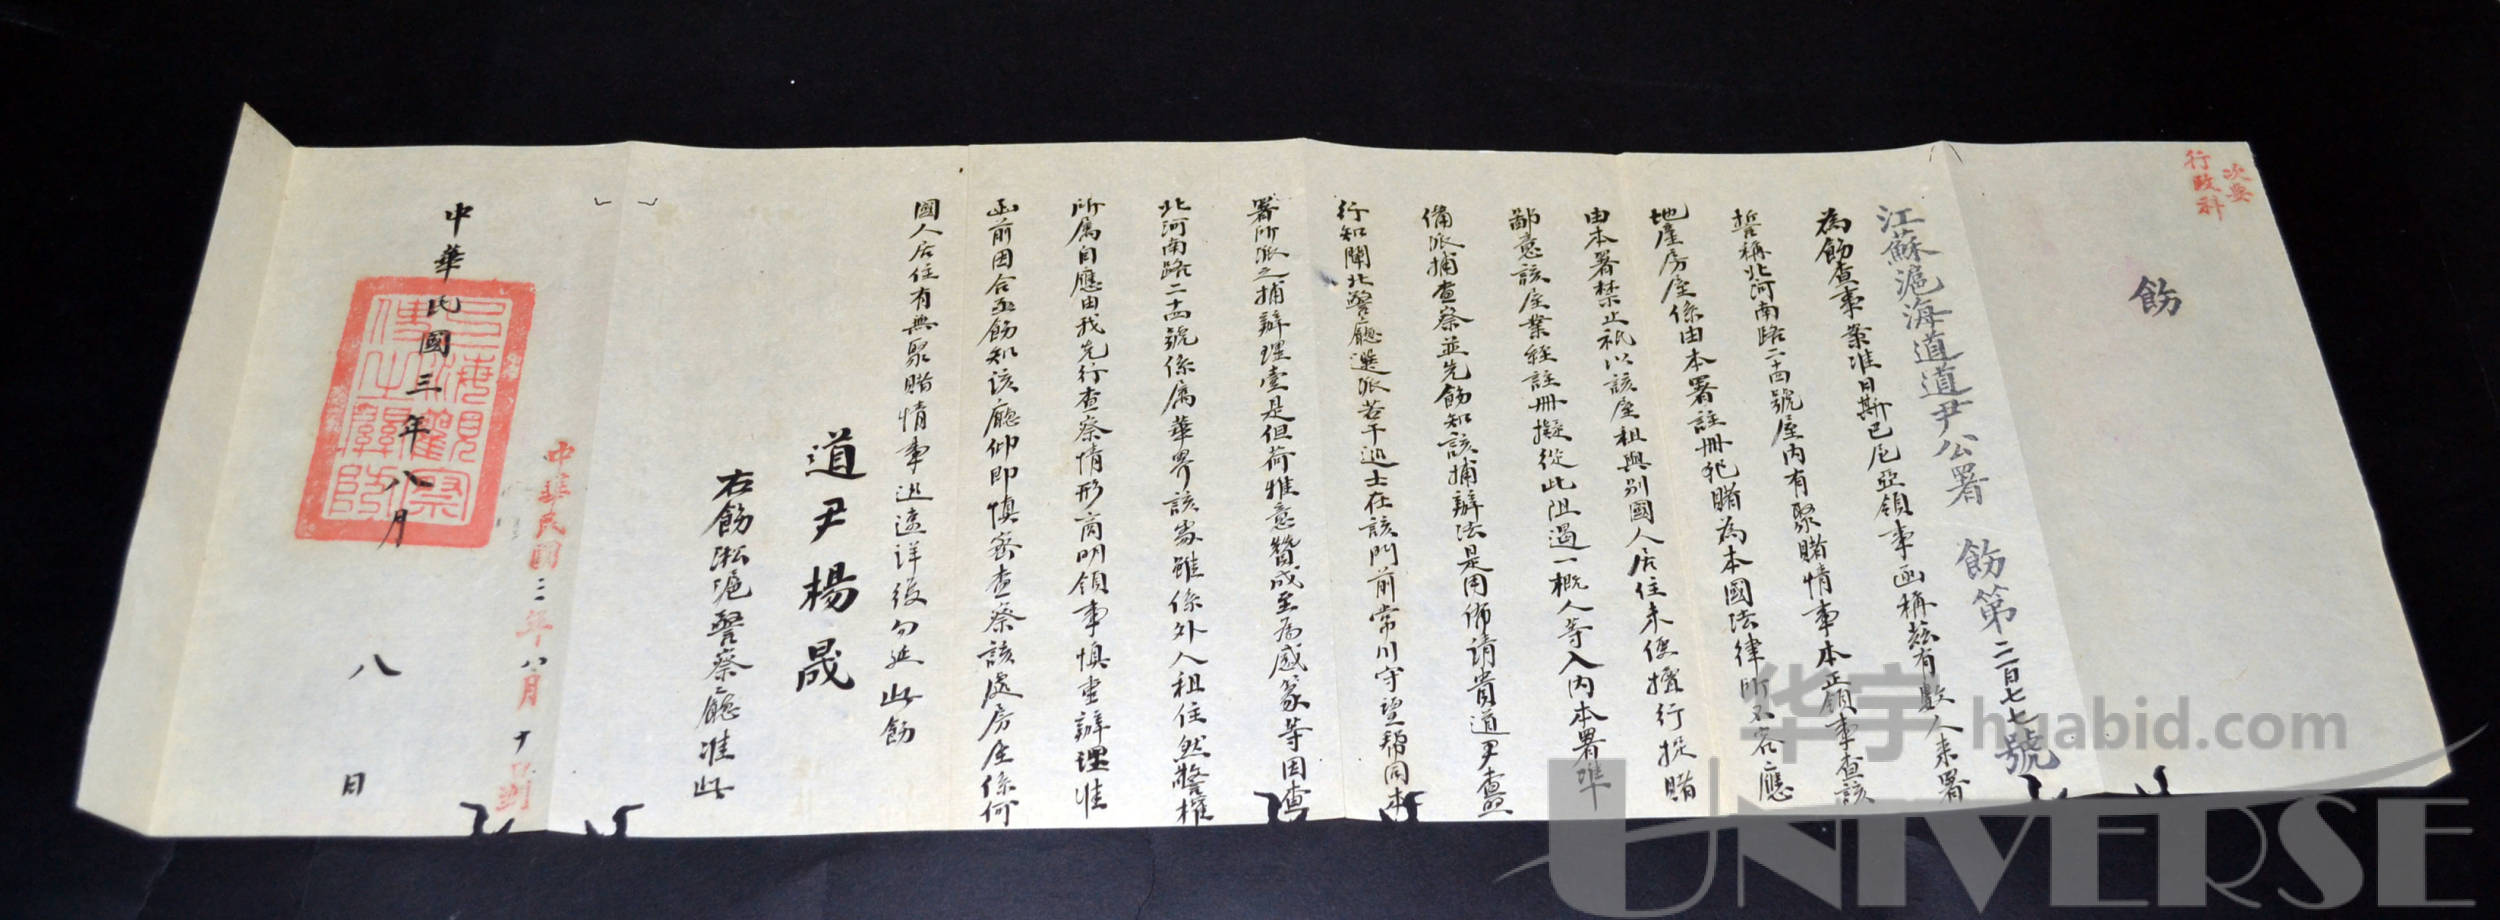 次要
行政科
飭
江蘇滬海道道尹公署 飭第二百七七號
為飭查事案准日斯巴尼亞領事函稱茲有數人來署
誓稱北河南路二十四號屋內有聚賭情事本正領事查該
地產房屋係由本署註冊犯賭為本國法律所不容應
由本署禁止祇以該屋租與別國人居住未便擅行捉賭
鄙意該屋業經註冊擬從此阻遏一概人等入內本署準
備派捕查察並先飭知該捕辦法是用佈請貴道尹查照
行知閘北警廳選派若干巡士在該門前常川守望幫同本
署所派之捕辦理壹是但荷雅意贊成至為感篆等因查
北河南路二十四號係屬華界該處雖係外人租住然警權
所屬自應由我先行查察情形商明領事慎重辦理准
函前因合亟飭知該廳仰即慎密查察該處房屋係何
國人居住有無聚賭情事迅速詳復勿延此飭
道尹楊晟
右飭淞滬警察廳准此
中華民國三年八月十到
中華民國三年八月 八 日
华宇 huabid.com
UNIVERSE